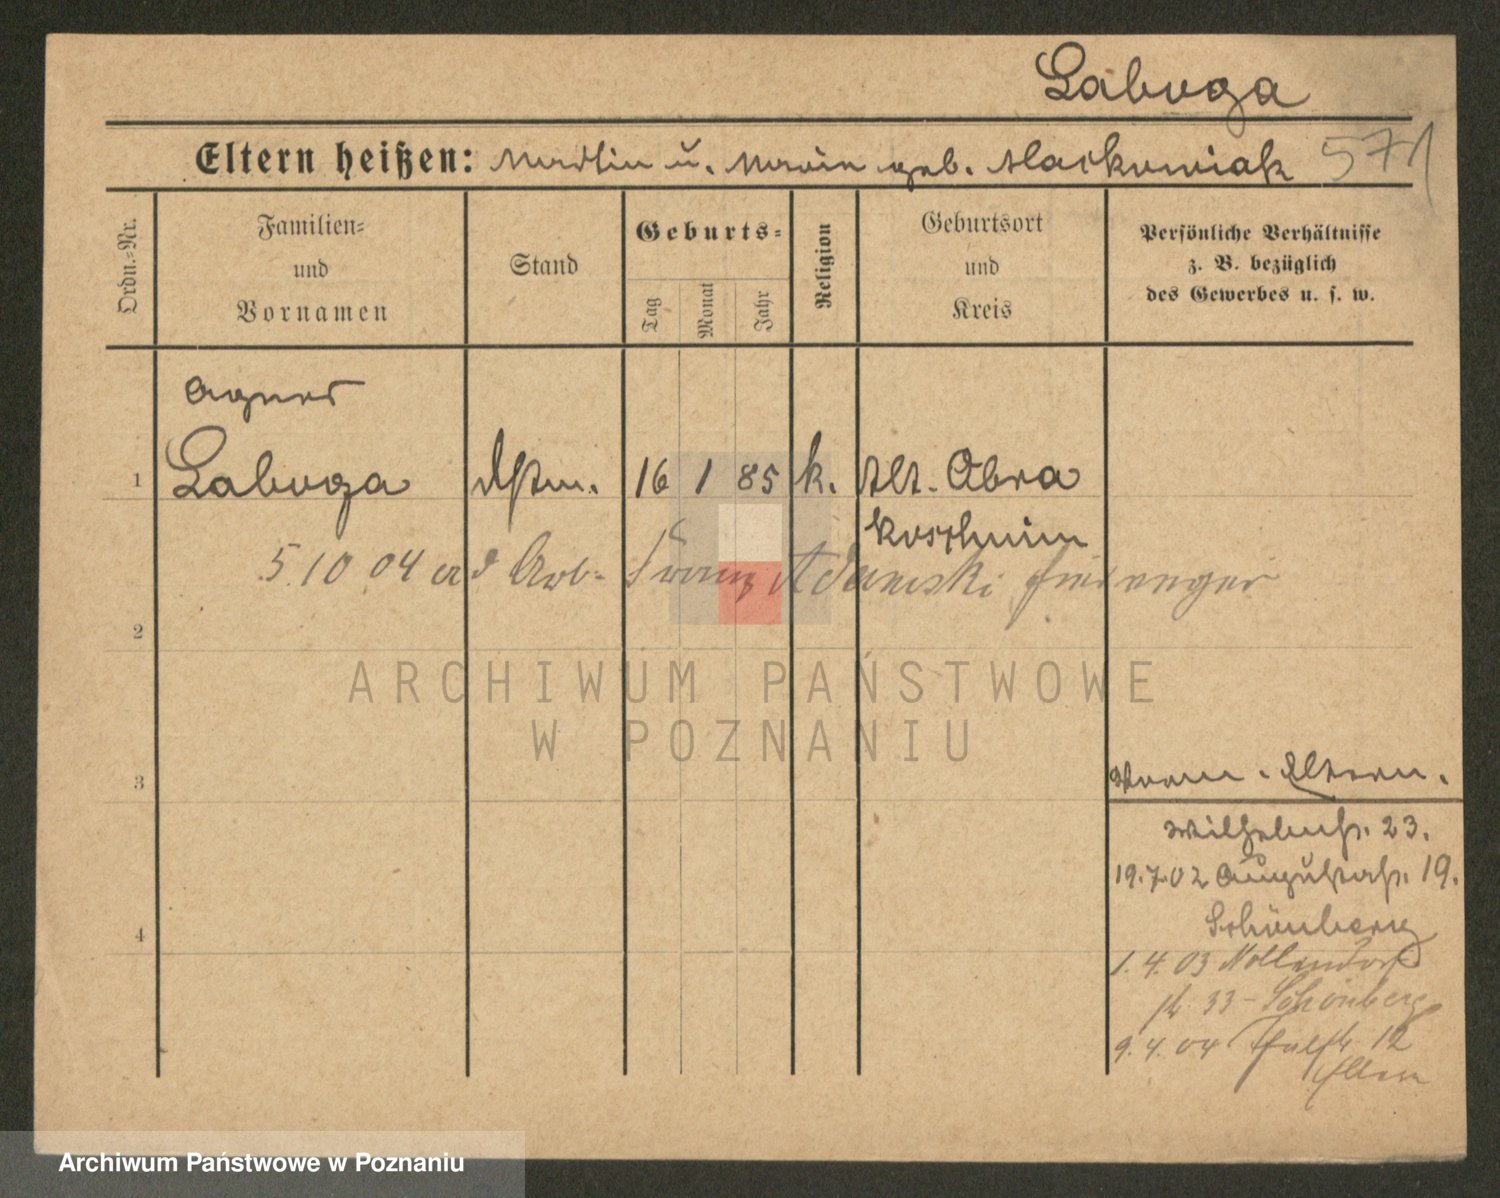 Labuga
Eltern heißen: Martin u. Marie geb. Maćkowiak 571
Ordn.-Nr.
Familien-
und
Vornamen
Stand
Geburts-
Tag
Monat
Jahr
Religion
Geburtsort
und
Kreis
Persönliche Verhältnisse
z. B. bezüglich
des Gewerbes u. s. w.
Agnes
1 Labuga Dstm. 16 1 85 k. Alt. Obra
Koschmin
5.10 04 a d Arb. Franz Adamski
2
ARCHIWUM PAŃSTWOWE
W POZNANIU
3
Eltern.
Wilhelmstr. 23.
19.7.02 Augustastr. 19.
Schöneberg
4
1.4.03 Nollendorf
str 33 - Schöneberg
9.4.04 12
Eltern
Archiwum Państwowe w Poznaniu